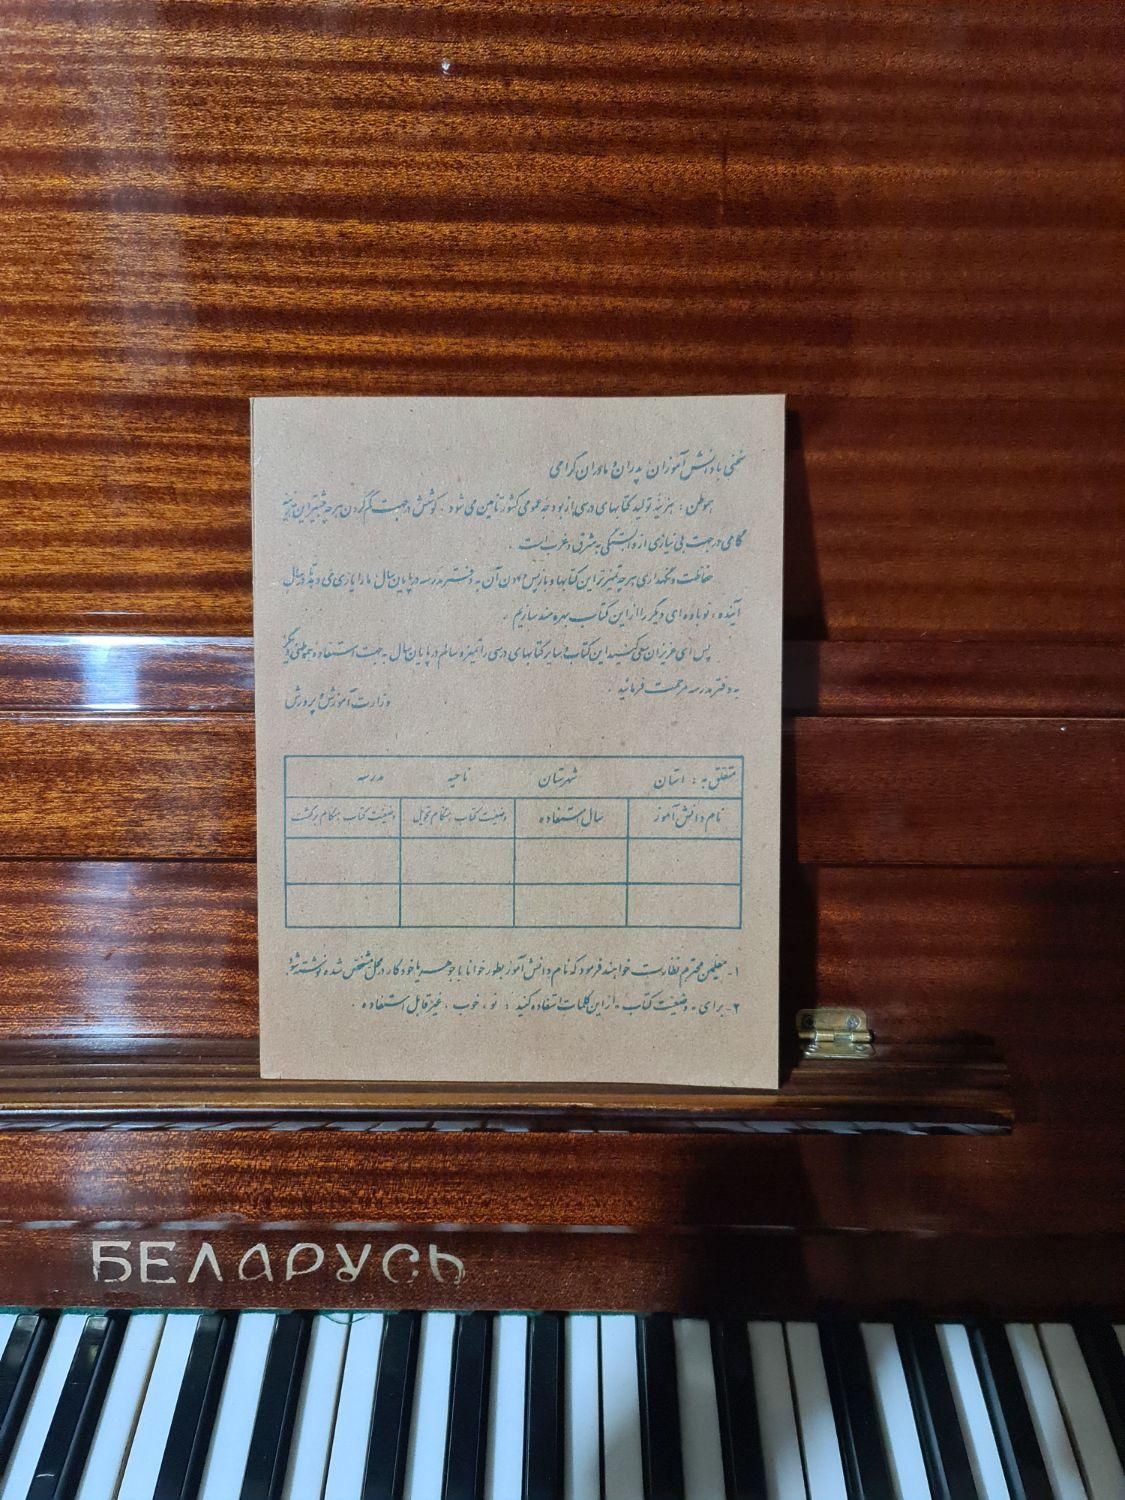 سخنی با دانش‌آموزان، پدران و مادران گرامی
هموطن : هزینه تولید کتابهای درسی از بودجه عمومی کشور تأمین می‌شود . کوشش در جهت کم کردن هر چه بیشتر این هزینه
گامی در جهت بی نیازی از وابستگی به شرق و غرب است .
حفاظت و نگهداری هر چه تمیزتر این کتابها و باز پس دادن آن به دفتر مدرسه در پایان سال ما را یاری می‌دهد تا در سال
آینده ، نوباوه‌ای دیگر را از این کتاب بهره‌مند سازیم .
پس ای عزیزان سعی کنید این کتاب و سایر کتابهای درسی را تمیز و سالم در پایان سال به جهت استفاده هموطنی دیگر
به دفتر مدرسه مرحمت فرمائید .
وزارت آموزش و پرورش
متعلق به : استان شهرستان ناحیه مدرسه
نام دانش آموز سال استفاده وضعیت کتاب هنگام تحویل وضعیت کتاب هنگام برگشت
۱- معلمین محترم نظارت خواهند فرمود که نام دانش آموز بطور خوانا با جوهر یا خودکار در محل مشخص شده نوشته شود
۲- برای « وضعیت کتاب » از این کلمات استفاده کنید : نو ، خوب ، غیرقابل استفاده .
БЕЛАРУСЬ